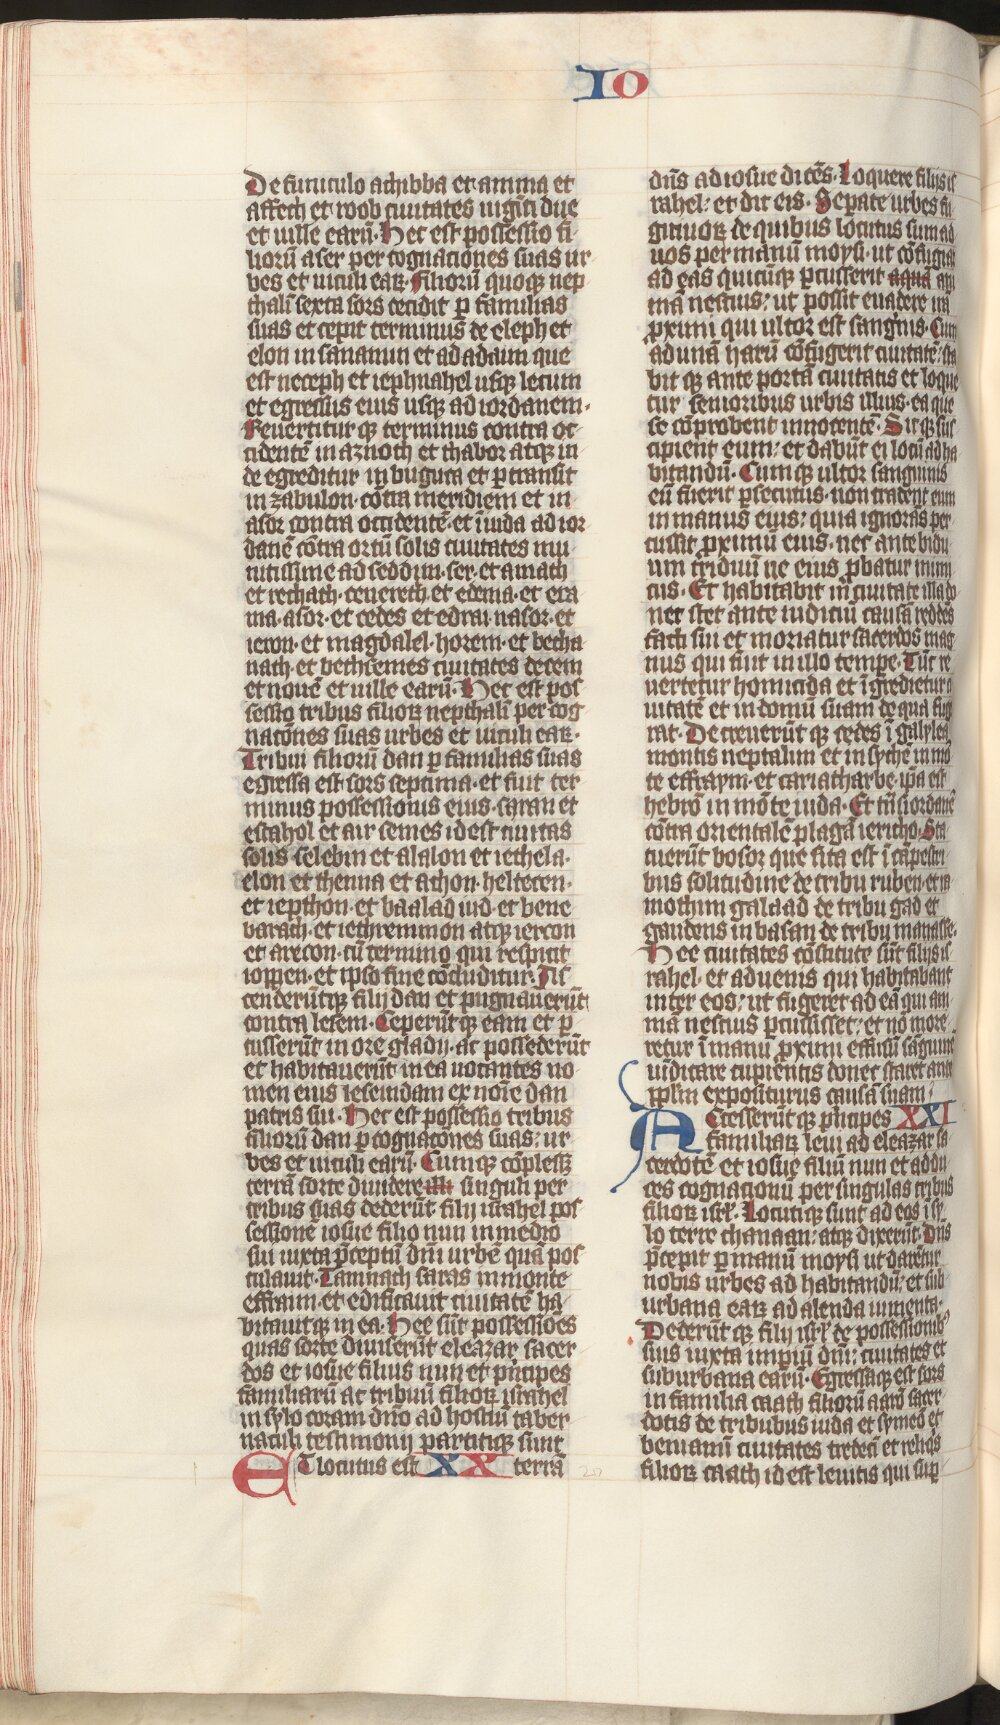 IO
De funiculo achibba et amma et
affech et roob ciuitates uigīti due
et uille earū. Hec est possessio fi-
liorū aser per cognationes suas ur
bes et uiculi eaꝝ. Filiorū quoqꝫ nep
thali sexta sors cecidit ꝑ familias
suas et cepit terminus de eleph et
elon in sananun et ad adami que
est neceph et iephnahel usqꝫ lecum
et egressus eius usqꝫ ad iordanem.
Reuertitur qꝫ terminus contra oc
cidentē in aznoth et thabor atqꝫ in
de egreditur in buguca et ꝑtransit
in zabulon. cōtra meridiem et in
asor contra occidentē. et iuda ad ior
danē cōtra ortū solis ciuitates mu
nitissime ad seddim. ser. et amath
et rechath. cenereth et edema. et era
ma. asor. et cedes et edrai. nasor. et
ieron. et magdalel. horem. et betha
nath. et bethsemes ciuitates decem
et nouē et uille earū. Hec est pos
sessio tribus filioꝝ nepthali per cog
nacōnes suas urbes et uiculi eaꝝ.
Tribui filiorū dan ꝑ familias suas
egressa est sors septima. et fuit ter
minus possessionis eius. saran et
estahol et air semes id est ciuitas
solis selebin et aialon et iethela.
elon et thenna et athon. helteten.
et iepthon. et baalad iud. et bene
barach. et iethremmon atqꝫ iercon
et arecon. cū termino qui respicit
ioppen. et ipso fine cōcluditur. As
cenderūtqꝫ filij dan et pugnauerūt
contra lesem. Ceperūt qꝫ eam et ꝑ
cusserūt in ore gladij. ac possederūt
et habitauerūt in ea uocantes no
men eius lesendam ex noīe dan
patris sui. Hec est possessio tribus
filiorū dan ꝑ cognacōnes suas: ur
bes et uiculi earū. Cumqꝫ cōplessꝫ
terrā sorte diuidere illi singuli per
tribus suas dederūt filij israhel pos
sessionē iosue filio nun in medio
sui iuxta p̄ceptū dn̄i urbē quā pos
tulauit. Tamnath saras in monte
effraim. et edificauit ciuitatē ha
bitauitqꝫ in ea. Hee sūt possessiōes
quas sorte diuiserūt eleazar sacer
dos et iosue filius nun et p̄ncipes
familiarū ac tribuū filioꝝ israhel
in sylo coram dn̄o ad hostiū taber
naculi testimonij partitiqꝫ sunt
ET locutus est XX terrā
dn̄s ad iosue dicēs. Loquere filijs is
rahel: et dic eis. Separate urbes fu
gitiuoꝝ de quibus locutus sum ad
uos per manū moysi. ut cōfugiat
ad eas quicūqꝫ ꝑcusserit aqua ani
mā nescius: ut possit euadere irā
ꝓximi qui ultor est sanginis. Cum
ad unā harū cōfugerit ciuitatē: sta
bit qꝫ ante portā ciuitatis et loque
tur senioribus urbis illius. ea que
se cōprobent innocentē. Sic qꝫ sus
cipient eum: et dabūt ei locū ad ha
bitandū. Cumqꝫ ultor sanguinis
eū fuerit ꝑsecutus. non tradent eum
in manus eius: quia ignorās per
cussit ꝓximū eius. nec ante bidu
um triduū ne eius ꝓbatur inimi
cus. Et habitabit in ciuitate illa do
nec stet ante iudiciū causā reddēs
facti sui et moriatur sacerdos mag
nus qui fuit in illo tempe. Tūc re
uertetur homicida et īgredietur ci
uitatē et in domū suam de qua fuge
rat. Decreuerūt qꝫ cedes ī galylea
montis neptalim et in sychē in mō
te effraym. et cariatharbe. ip̄a est
hebrō in mōte iuda. Et trās iordanē
cōtra orientalē plagā iericho. Sta
tuerūt bosor que sita est ī cāpestri
bus solitudine de tribu ruben. et ra
mothim galaad de tribu gad et
gaudens in basan de tribu manasse.
Hee ciuitates cōstitute sūt filijs is
rahel. et aduenis qui habitabant
inter eos: ut fugeret ad eā qui ani
mā nescius ꝑcussisset: et nō more
retur ī manu ꝓximi effusū sāguinē
uīdicare cupientis donec staret ante
pplm̄ expositurus causā suam.
ACcesserūtqꝫ p̄ncipes XXI
familiaꝝ leui ad eleazar sa
cerdotē et iosue filiū nun et ad du
ces cognacionū per singulas tribus
filioꝝ isrl̄. Locutiqꝫ sunt ad eos ī sy
lo terre chanaan: atqꝫ dixerūt. Dn̄s
p̄cepit ꝑ manū moysi ut darentur
nobis urbes ad habitandū: et sub
urbana eaꝝ ad alenda iumenta.
Dederūt qꝫ filij isrl̄ de possessionibꝫ
suis iuxta imperiū dn̄i: ciuitates et
suburbana earū. Egressaqꝫ est sors
in familia caath filiorū aarō sacer
dotis de tribubus iuda et symeō et
beniamī ciuitates tredecī et reliqs
filioꝝ caath id est leuitis qui supͥ